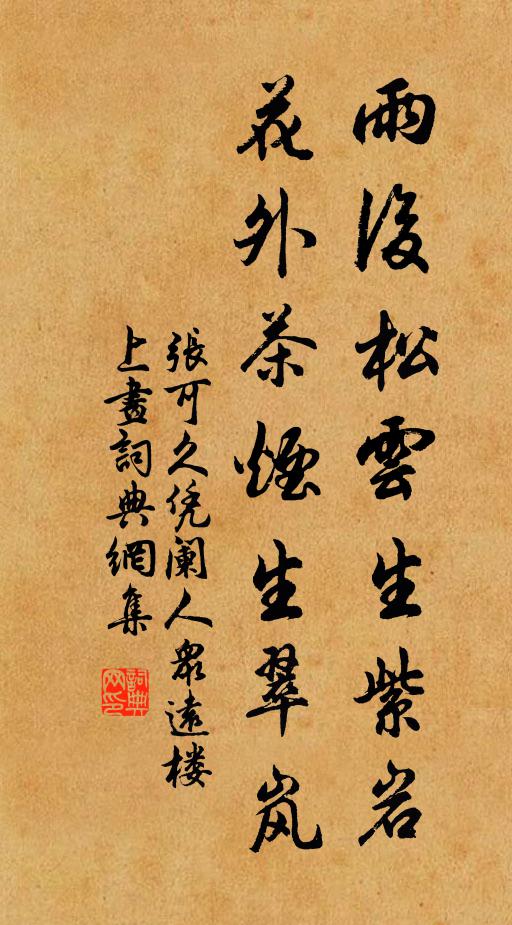 雨後松雲生紫岩
花外茶煙生翠岚
張可久凭闌人眾遠楼
上畫詞典網集
詞典网印